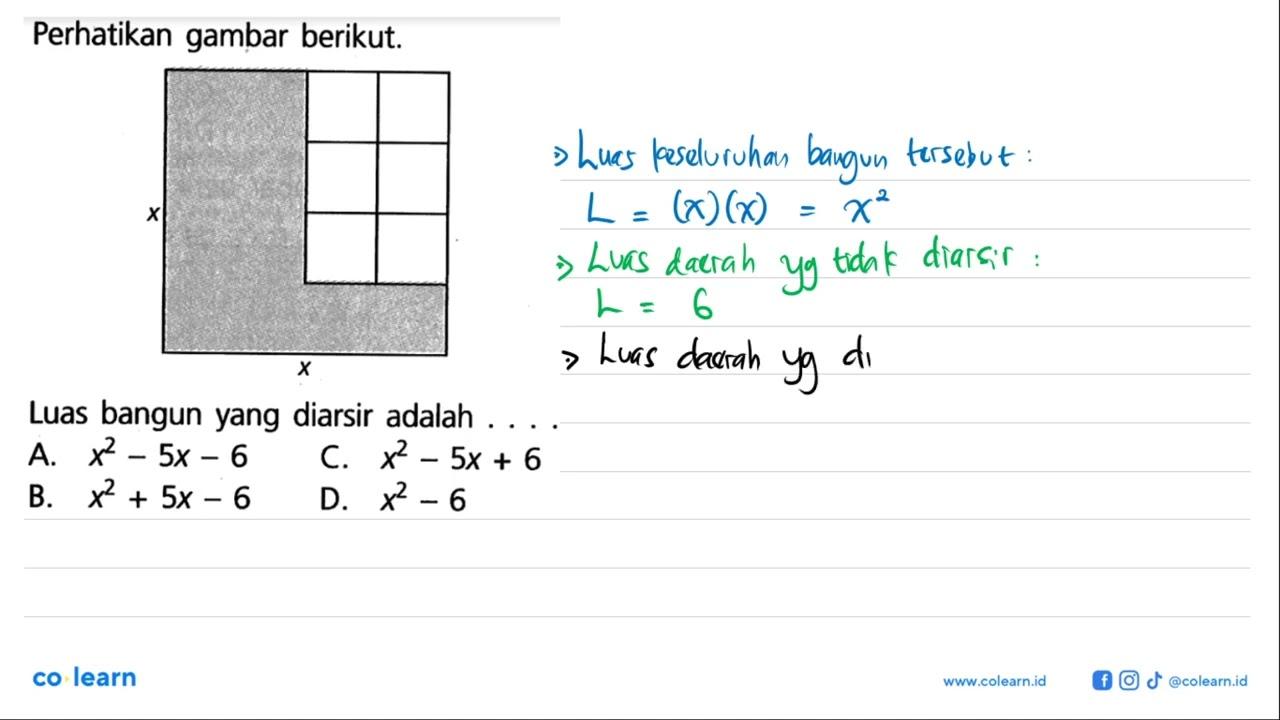 Perhatikan gambar berikut.
x
x
Luas bangun yang diarsir adalah . . . .
A. x² – 5x – 6 C. x² – 5x + 6
B. x² + 5x – 6 D. x² – 6
⇒ Luas keseluruhan bangun tersebut :
L = (x)(x) = x²
⇒ Luas daerah yg tidak diarsir :
L = 6
⇒ Luas daerah yg di
co learn
www.colearn.id
@colearn.id